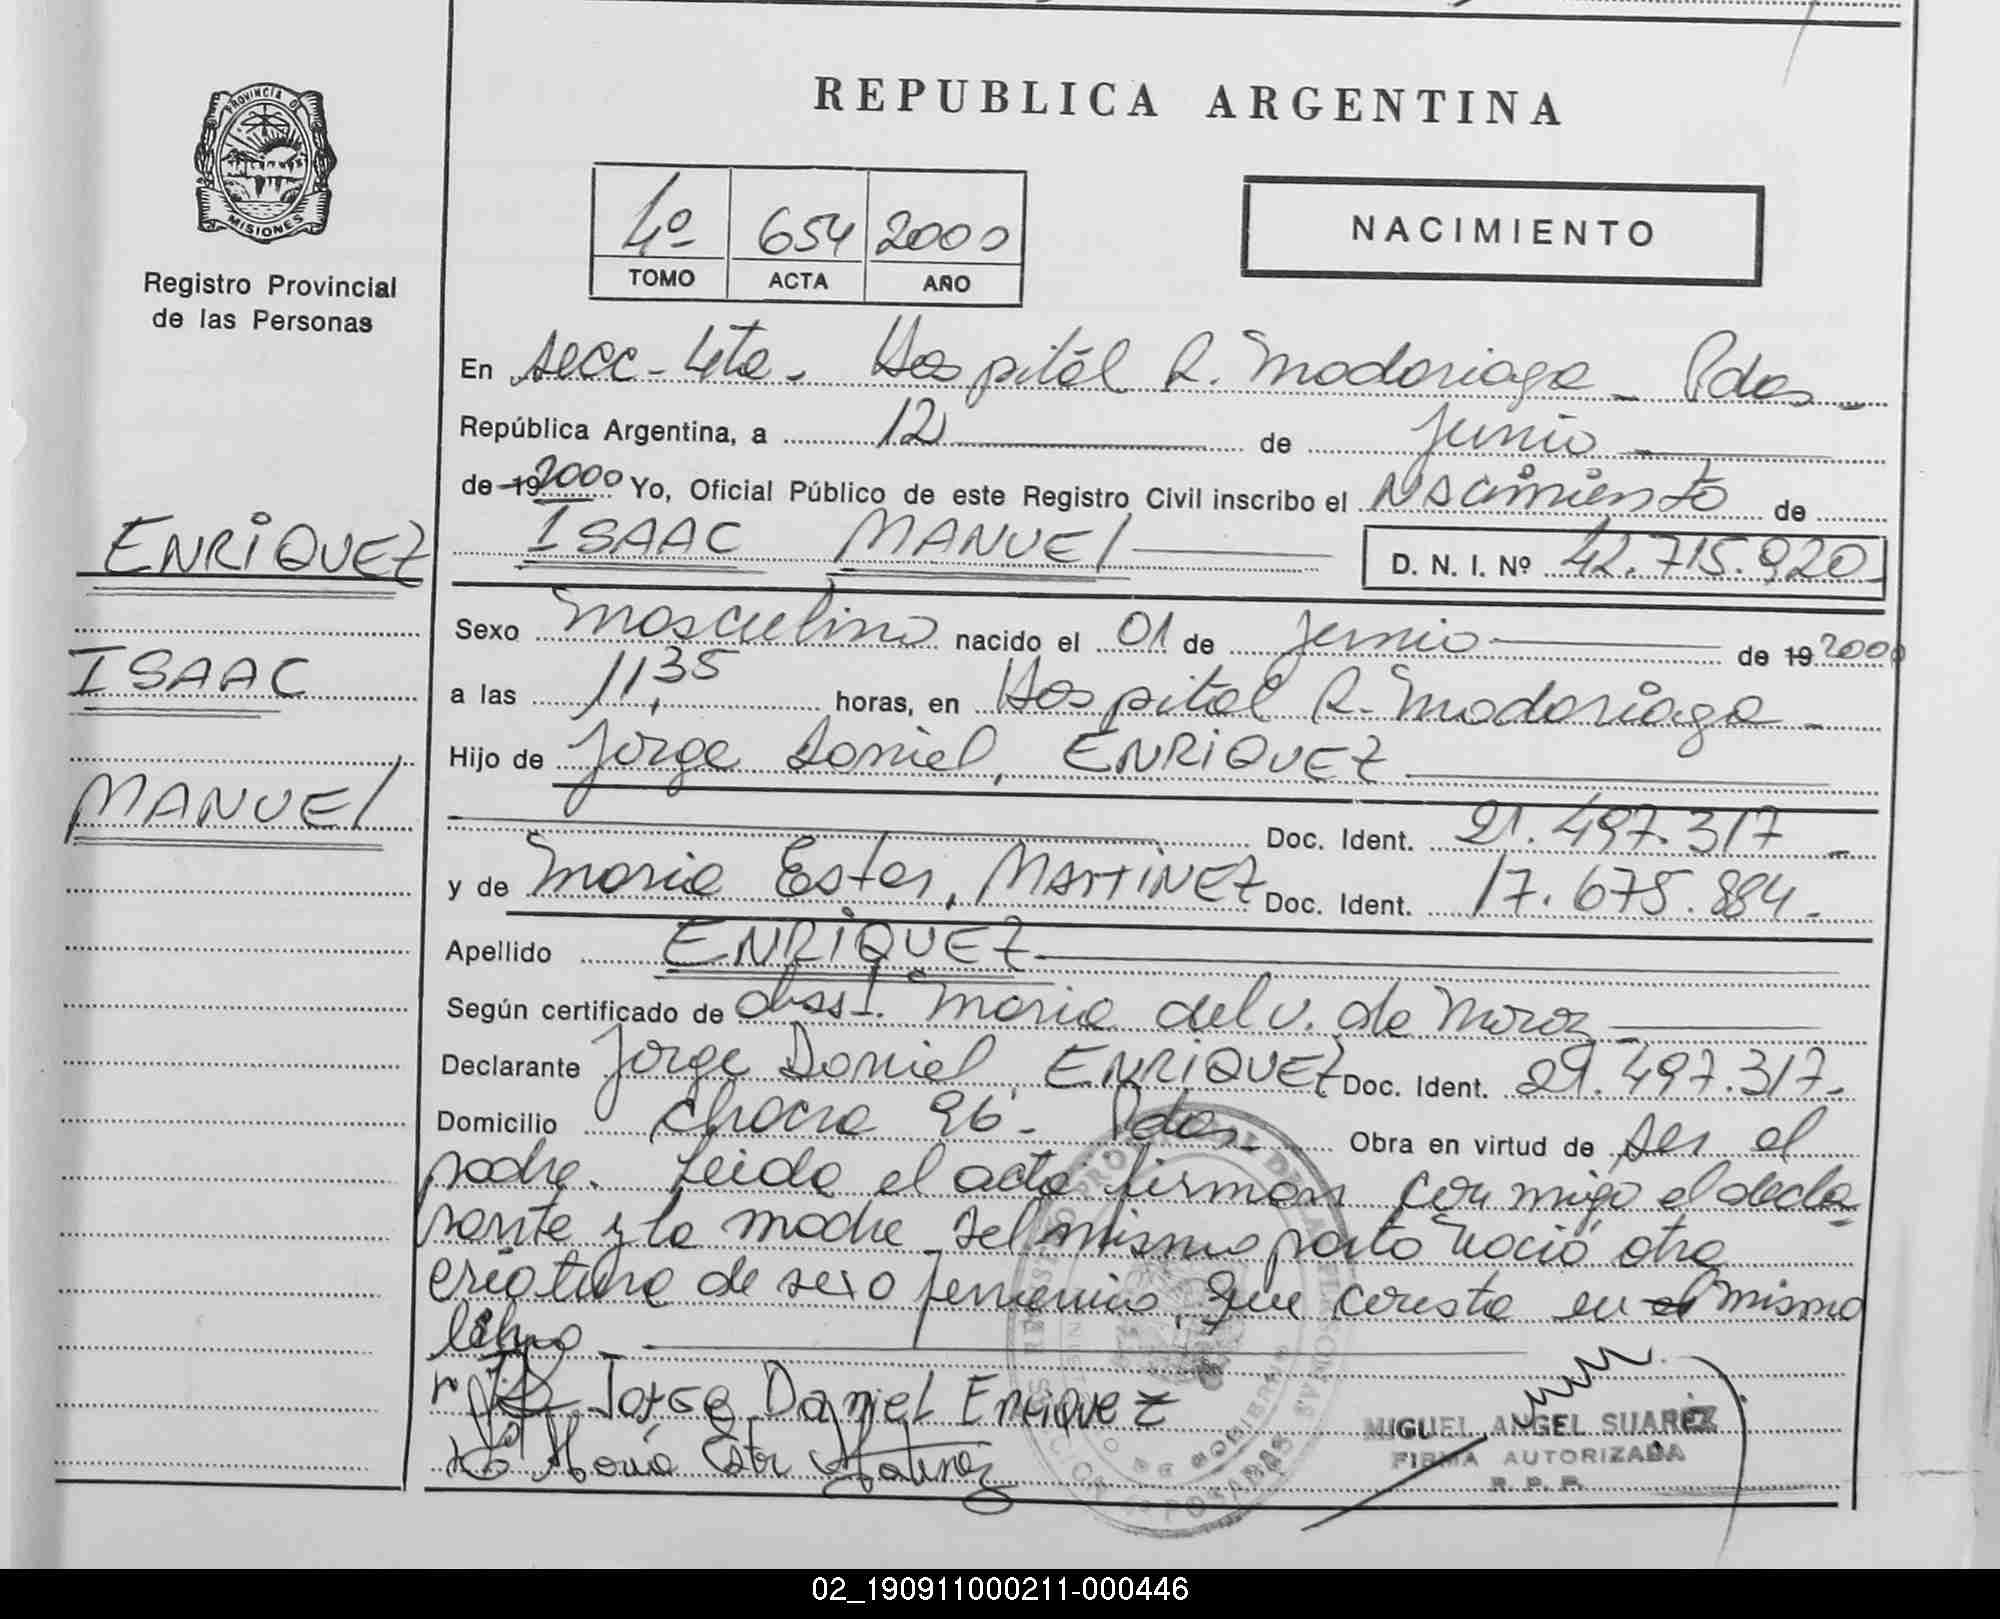 REPUBLICA ARGENTINA
PROVINCIA DE
MISIONES
Registro Provincial
de las Personas
4º 654 2000
TOMO ACTA AÑO
NACIMIENTO
En secc - 4ta - Hospital R. Madariaga - Pdas -
República Argentina, a 12 de junio
de 19 2000 Yo, Oficial Público de este Registro Civil inscribo el Nacimiento de
ISAAC MANUEL D. N. I. Nº 42.715.920
ENRIQUEZ
ISAAC
MANUEL
Sexo masculino nacido el 01 de junio de 19 2000
a las 11,35 horas, en Hospital R. Madariaga -
Hijo de Jorge Daniel, ENRIQUEZ
Doc. Ident. 21.497.317 -
y de Maria Ester, MARTINEZ Doc. Ident. 17.675.884 -
Apellido ENRIQUEZ
Según certificado de Obst. Maria del v. de
Declarante Jorge Daniel, ENRIQUEZ Doc. Ident. 21.497.317 -
Domicilio chacra 96 - Pdas - Obra en virtud de ser el
padre. Leida el acta firman con migo el decla
rante y la madre. Del mismo parto nació otra
criatura de sexo femenino, que consta en el mismo
libro
Jorge Daniel Enriquez
María Ester Martinez
MIGUEL ANGEL SUAREZ
FIRMA AUTORIZADA
R. P. P.
02_190911000211-000446